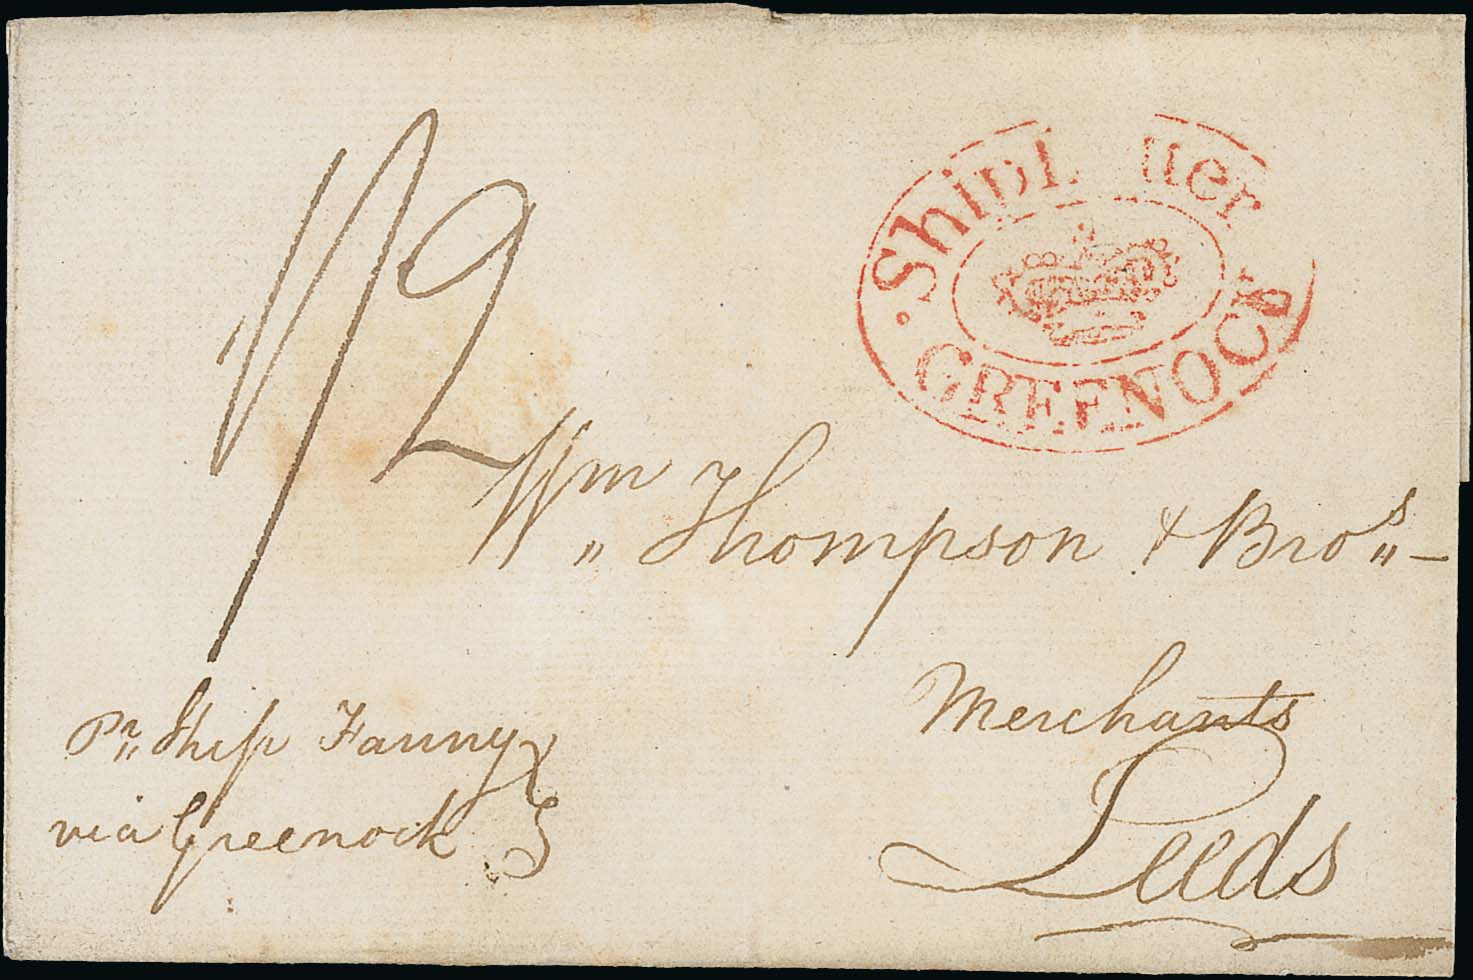 1/2
Ship L uer
GREENOCK
Wm Thompson & Bros
Merchants
Leeds
Pr Ship Fanny
via Greenock